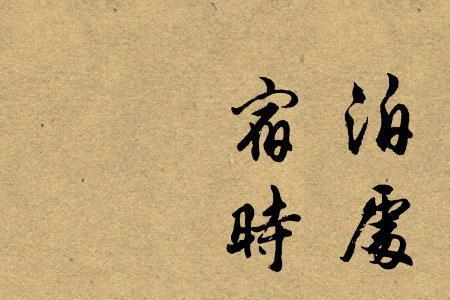 泊處
宿時